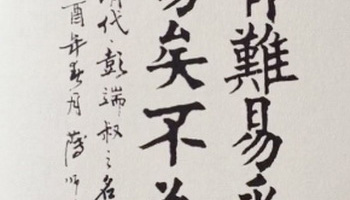 有難易乎
易矣不為
清代·彭端叔之名
酉年春月薩师